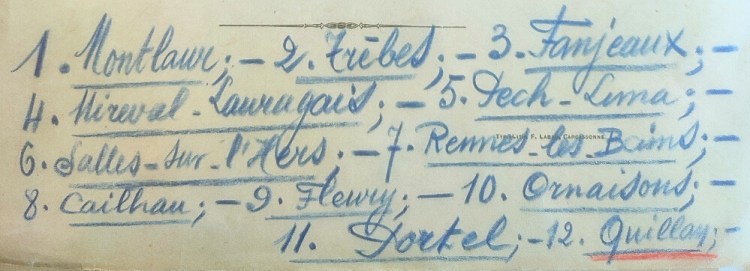 1. Montlaur; – 2. Trèbes; – 3. Fanjeaux; –
4. Mireval-Lauragais; – 5. Pech-Luna; –
6. Salles-sur-l'Hers; – 7. Rennes-les-Bains; –
8. Cailhau; – 9. Fleury; – 10. Ornaisons; –
11. Portel; – 12. Quillan; –